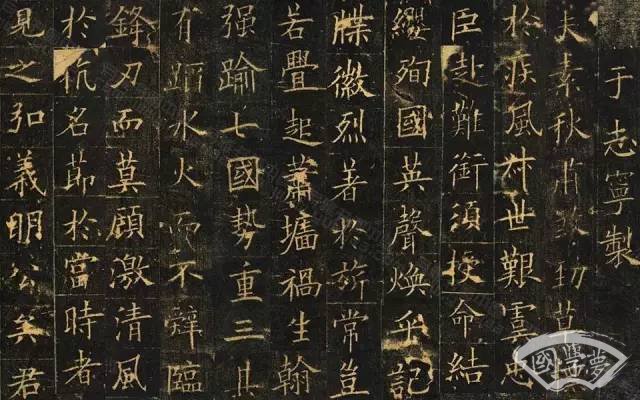 于志寧製
夫素秋肅煞勁草
於疾風叔世艱虞忠
臣赴難銜須授命結
纓殉國英聲煥乎記
牒徽烈著於旂常豈
若舋起蕭墻禍生翰
强踰七國勢重三其
有蹈水火而不辭臨
鋒刃而莫顧激清風
於抗名節於當時者
見之弘義明公矣君
國學夢